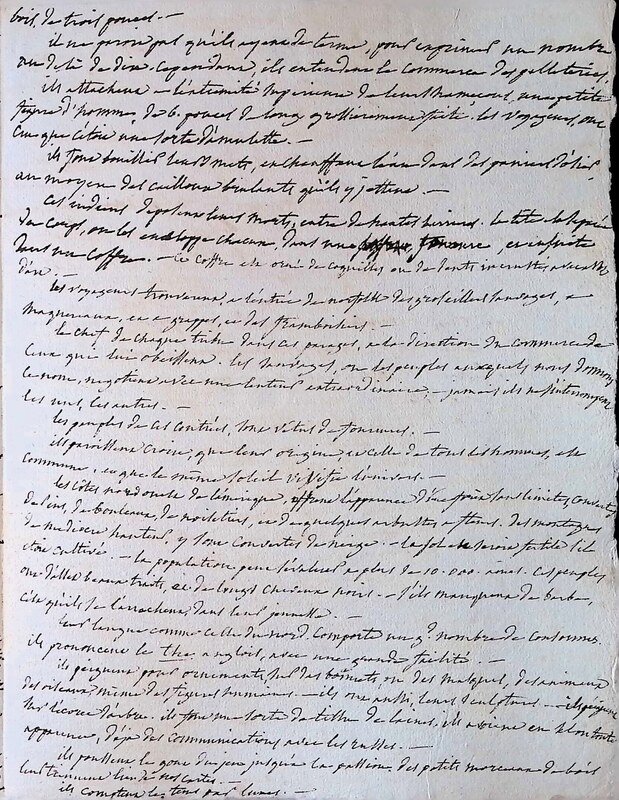 bois, de trois pouces. —
il ne paroit pas qu'ils ayent de terme, pour exprimer un nombre
au delà de dix. Cependant, ils entendent le Commerce des pelleteries.
ils attachent à l'extremité superieure de leurs hameçons, une petite
figure d'homme, de 6. pouces de long, grossierement faite. les voyageurs, ont
cru que c'etoit une sorte d'amulette. —
ils font bouillir leurs mets, en chauffant l'eau dans des paniers d'osier
au moyen des cailloux brulants qu'ils y jettent. —
Ces indiens deposent leurs morts, entre de hautes. La tête est separée
du corps, on les enveloppe chacun, dans une fourure, et ensuite
dans un coffre. — Ce coffre est orné de coquilles ou de dents incrustés, avec
d'art. —
les voyageurs trouverent, à l'entrée de norfolk des groseillers sauvages, à
maquereaux, et à grappes, et des framboisiers. —
le chef de chaque tribu dans ces parages, a la direction du commerce de
ceux qui lui obeissent. les sauvages, ou les peuples auxquels nous donnons
ce nom, negotient avec une lenteur extraordinaire, — jamais ils ne s'interrompent
les uns, les autres. —
les peuples de ces contrées, sont vetus de fourures. —
ils paroissent croire, que leur origine, et celle de tous les hommes, est
commune, et que le même soleil vivifie l'univers. —
les côtes nord ouest de l'amerique, offrent l'apparence d'une forêt sans limites, couverte
de pins, de bouleaux, de noisetiers, et de quelques arbustes à fleurs. des montagnes
de mediocre hauteur, y sont couvertes de neige. — le sol seroit fertile s'il
etoit cultivé. — la population peut s'evaluer à plus de 10.000 ames. Ces peuples
ont d'assez beaux traits, et de longs cheveux noirs. — s'ils manquent de barbe,
c'est qu'ils se l'arrachent, dans leur jeunesse. —
leur langue comme celle du nord. Comporte un gd. nombre de consonnes.
ils prononcent le the anglois, avec une grande facilité. —
ils peignent pour ornements, sur des bonnets, ou des masques, des animaux
des oiseaux même des figures humaines. — ils ont aussi, leurs sculpteurs. — ils
sur l'ecorce d'arbre. ils font une sorte de tissu de laines, ils avoient en selon toute
apparence, déjà des communications avec les russes. —
ils poussent le gout du jeu jusqu'à la passion. des petits morceaux de bois
leur tiennent lieu de nos cartes. —
ils comptent le tems par lunes. —